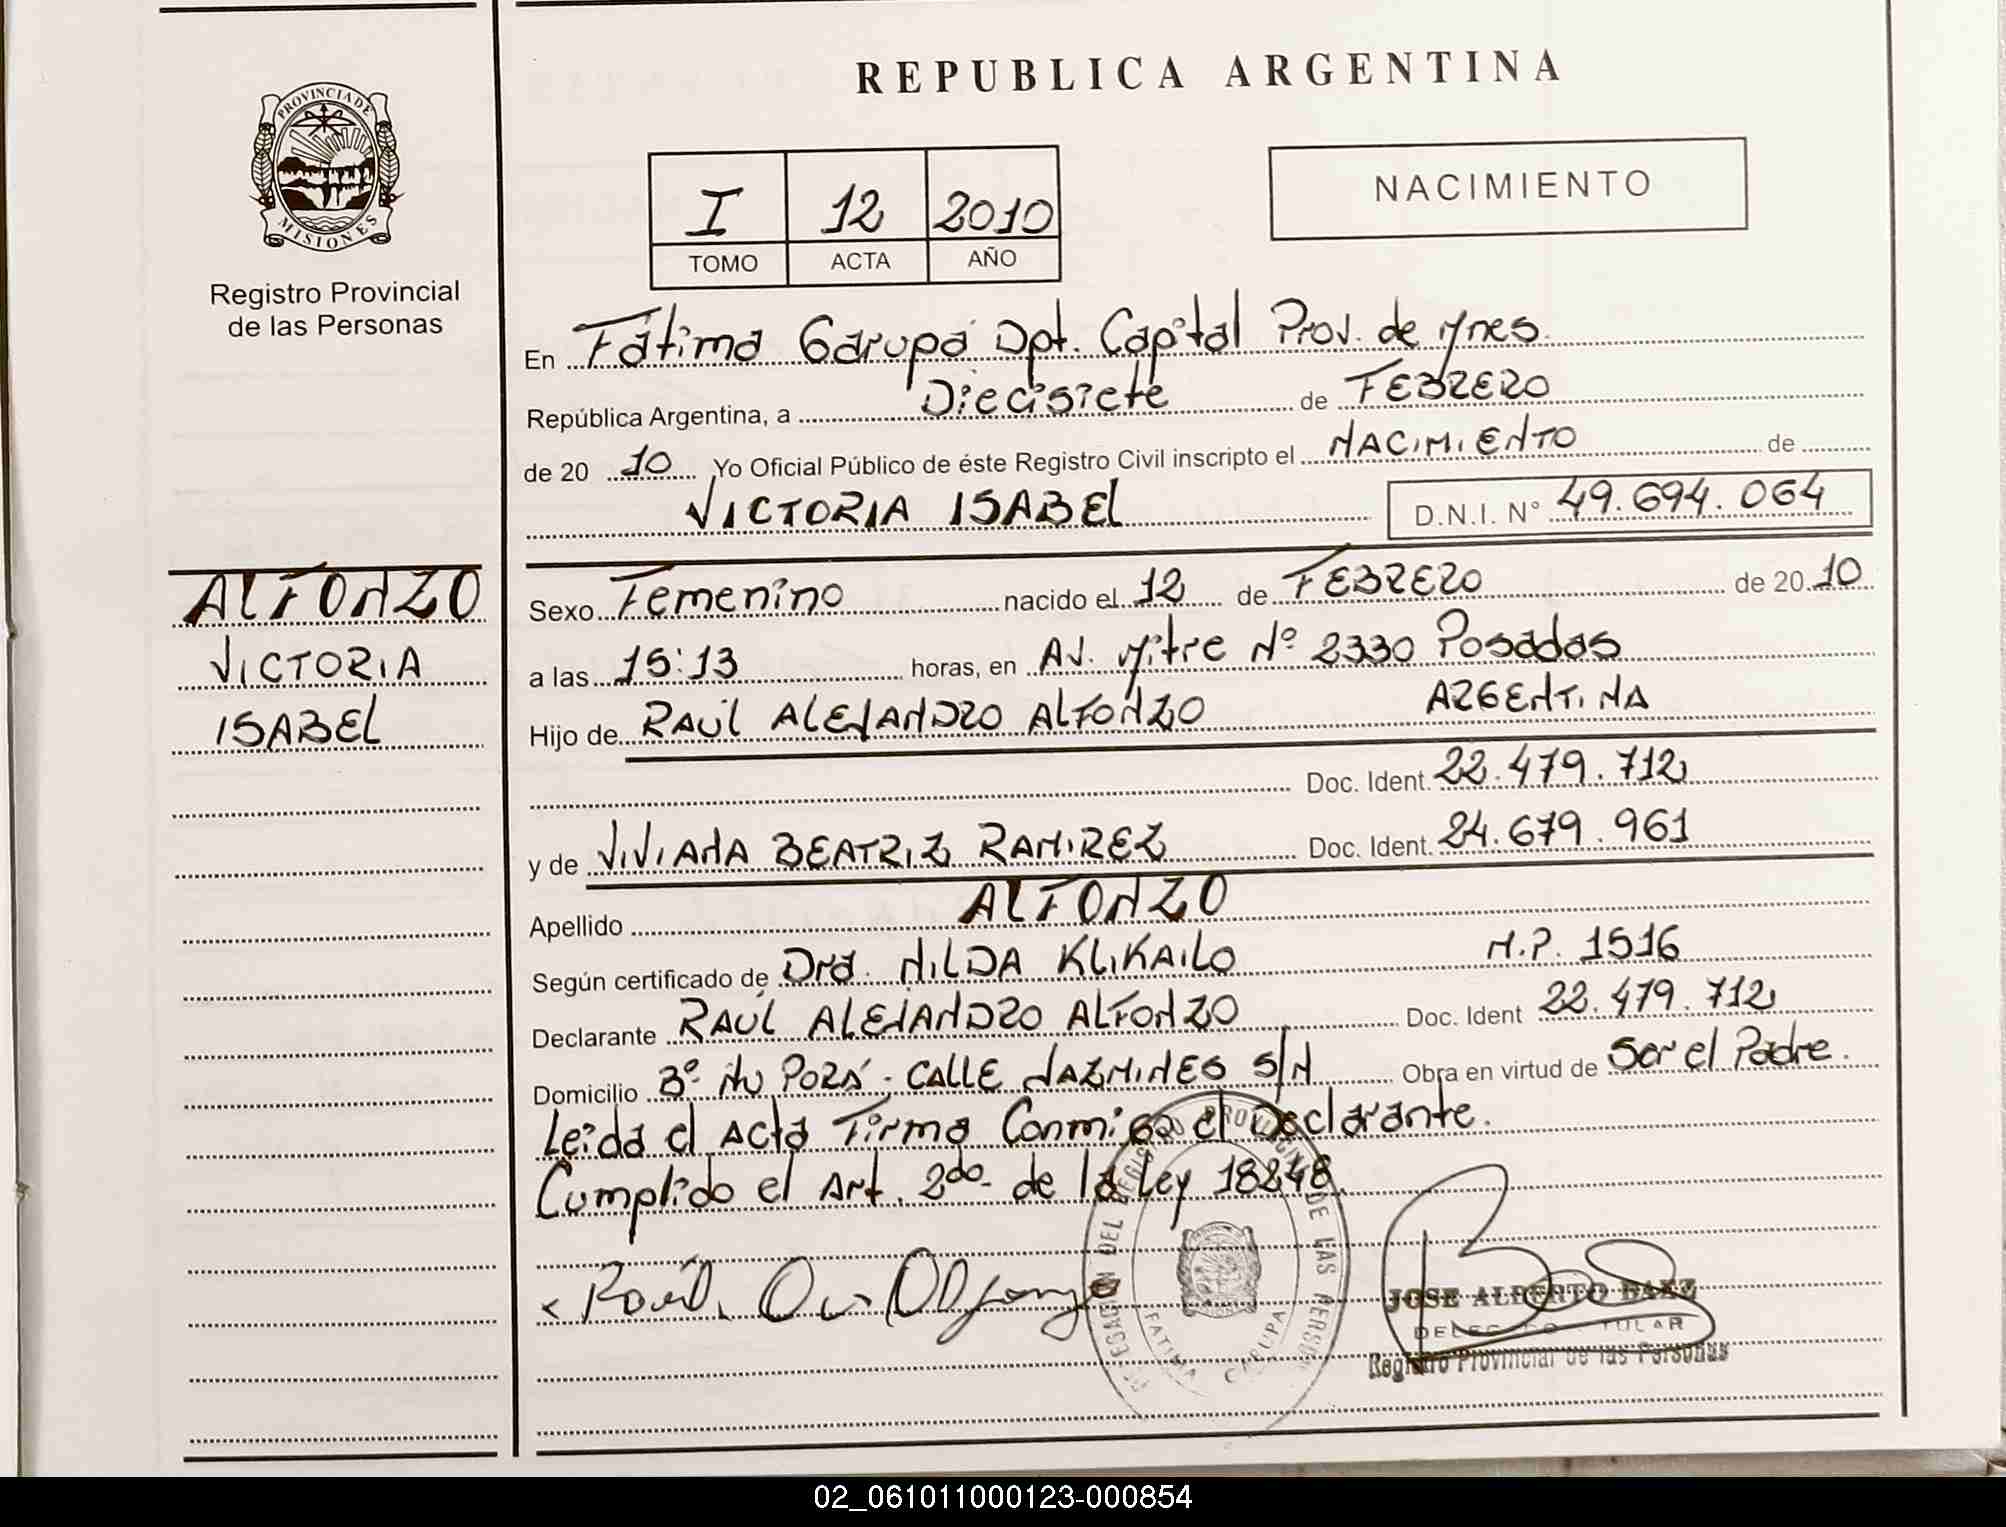 REPUBLICA ARGENTINA
PROVINCIA DE
MISIONES
Registro Provincial
de las Personas
I 12 2010
TOMO ACTA AÑO
NACIMIENTO
En Fátima Garupá Dpt. Capital Prov. de Mnes.
República Argentina, a Diecisiete de FEBRERO
de 20 10 Yo Oficial Público de éste Registro Civil inscripto el NACIMIENTO de
VICTORIA ISABEL D.N.I. N° 49.694.064
ALFONZO
VICTORIA
ISABEL
Sexo Femenino nacido el 12 de FEBRERO de 20 10
a las 15:13 horas, en Av. Mitre Nº 2330 Posadas
Hijo de RAÚL ALEJANDRO ALFONZO ARGENTINA
Doc. Ident. 22.479.712
y de VIVIANA BEATRIZ RAMIREZ Doc. Ident. 24.679.961
Apellido ALFONZO
Según certificado de Dra. HILDA KLIKAILO M.P. 1516
Declarante RAÚL ALEJANDRO ALFONZO Doc. Ident 22.479.712
Domicilio Bº Ñu PORÁ. CALLE JAZMINES S/N Obra en virtud de Ser el Padre.
Leida el Acta Firma Conmigo el Declarante.
Cumplido el Art. 2do. de la Ley 18248.
DELEGACION DEL REGISTRO PROVINCIAL DE LAS PERSONAS
FATIMA GARUPA
JOSE ALBERTO BAEZ
DELEGADO TITULAR
Registro Provincial de las Personas
02_061011000123-000854